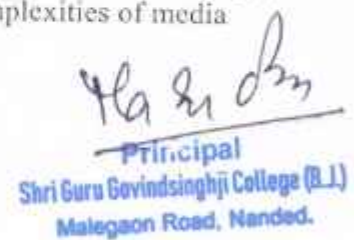 mplexities of media
Principal
Shri Guru Govindsinghji College (B.J.)
Malegaon Road, Nanded.